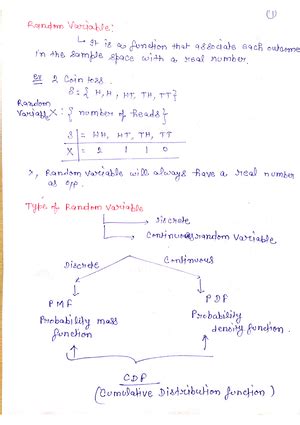 (1)
Random Variable:
It is a function that associate each outcome
in the sample space with a real number.
Ex 2 Coin toss.
S: { H,H, HT, TH, TT}
Random
Variable X: { number of heads}
S = HH, HT, TH, TT
X = 2 1 1 0
Random Variable will always have a real number
as o/p.
Type of Random Variable
Discrete
Continuous random Variable
Discrete Continuous
PMF PDF
Probability mass Probability
function density function.
CDF
(Cumulative Distribution function)